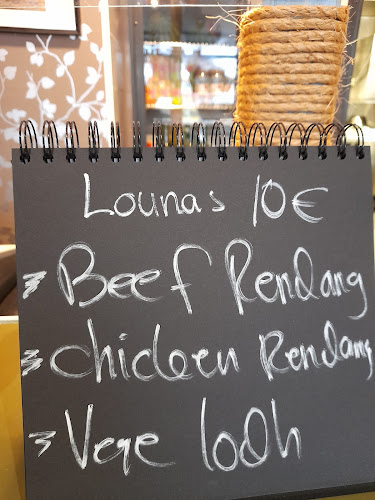 Lounas 10€
Beef Rendang
Chicken Rendang
Vege lodh